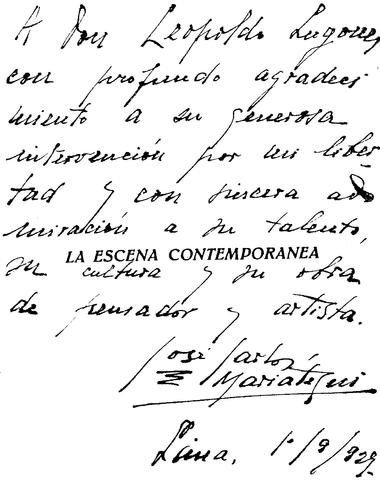 A Don Leopoldo Lugones,
con profundo agradeci
miento a su generosa
intervención por mi liber-
tad y con sincera ad
miración a su talento,
LA ESCENA CONTEMPORANEA
su cultura y su obra
de pensador y artista.
José Carlos
Mariátegui
Lima, 1º/9/927